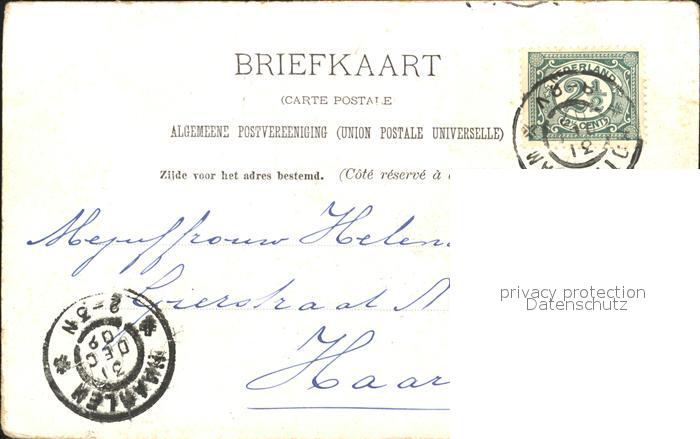 BRIEFKAART
(CARTE POSTALE
ALGEMEENE POSTVEREENIGING (UNION POSTALE UNIVERSELLE)
Zijde voor het adres bestemd. (Côté réservé à
NEDERLAND
2½
CENT
31
Mejuffrouw Helen
Gierstraat
Haar
privacy protection
Datenschutz
HAARLEM
31
DEC
2-3N